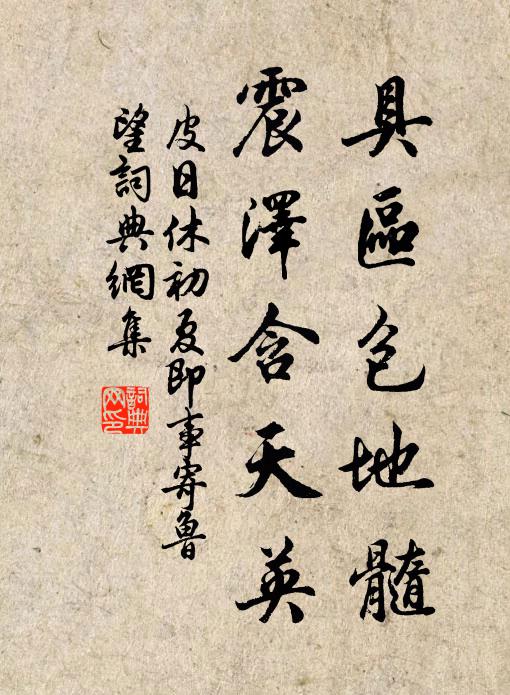 具區包地髓
震澤含天英
皮日休初夏即事寄魯
望詞典網集
詞典网印